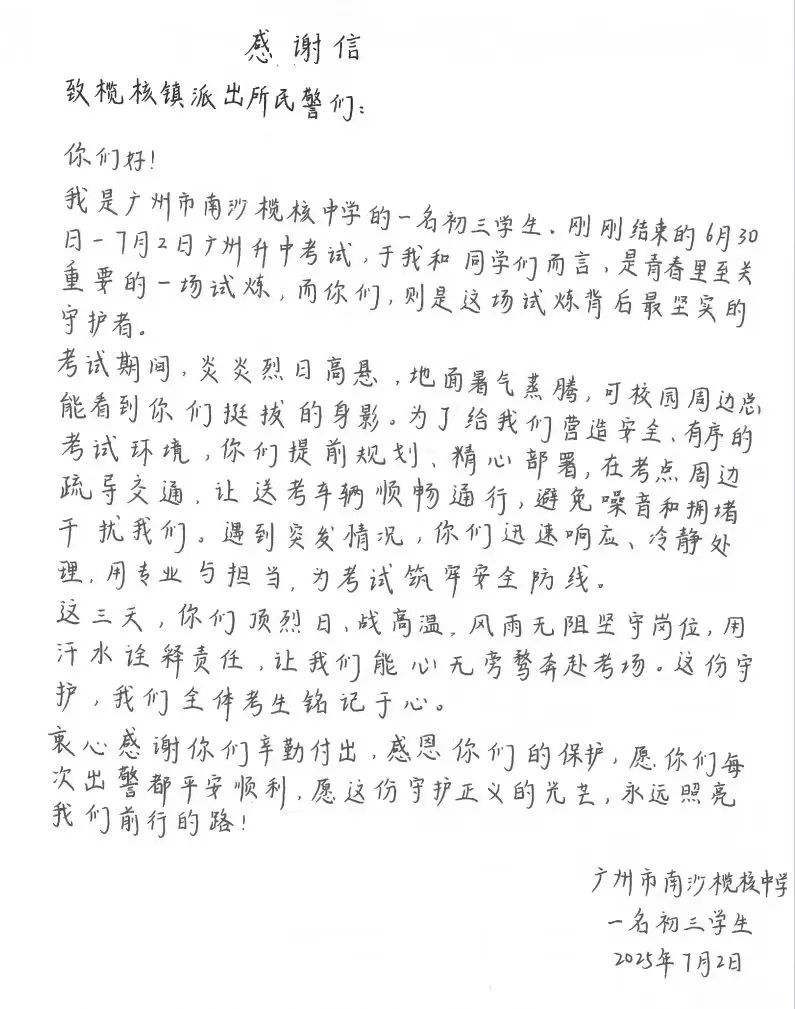 感谢信
致榄核镇派出所民警们:
你们好!
我是广州市南沙榄核中学的一名初三学生.刚刚结束的6月30
日-7月2日广州升中考试,于我和同学们而言,是青春里至关
重要的一场试炼,而你们,则是这场试炼背后最坚实的
守护者。
考试期间,炎炎烈日高悬,地面暑气蒸腾,可校园周边总
能看到你们挺拔的身影。为了给我们营造安全、有序的
考试环境,你们提前规划、精心部署,在考点周边
疏导交通,让送考车辆顺畅通行,避免噪音和拥堵
干扰我们。遇到突发情况,你们迅速响应、冷静处
理,用专业与担当,为考试筑牢安全防线。
这三天,你们顶烈日、战高温,风雨无阻坚守岗位,用
汗水诠释责任,让我们能心无旁骛奔赴考场。这份守
护,我们全体考生铭记于心。
衷心感谢你们辛勤付出,感恩你们的保护,愿你们每
次出警都平安顺利,愿这份守护正义的光芒,永远照亮
我们前行的路!
广州市南沙榄核中学
一名初三学生
2025年7月2日